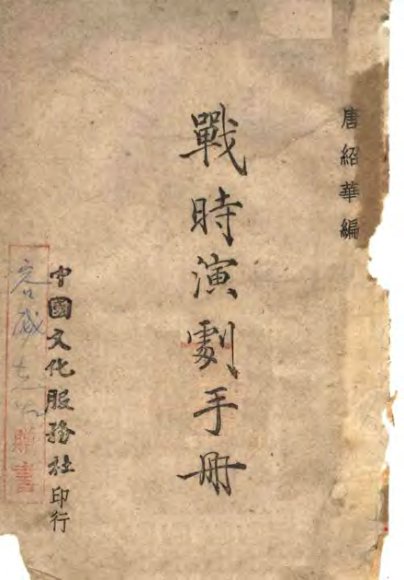 唐紹華編
戰時演劇手冊
中國文化服務社印行
贈書